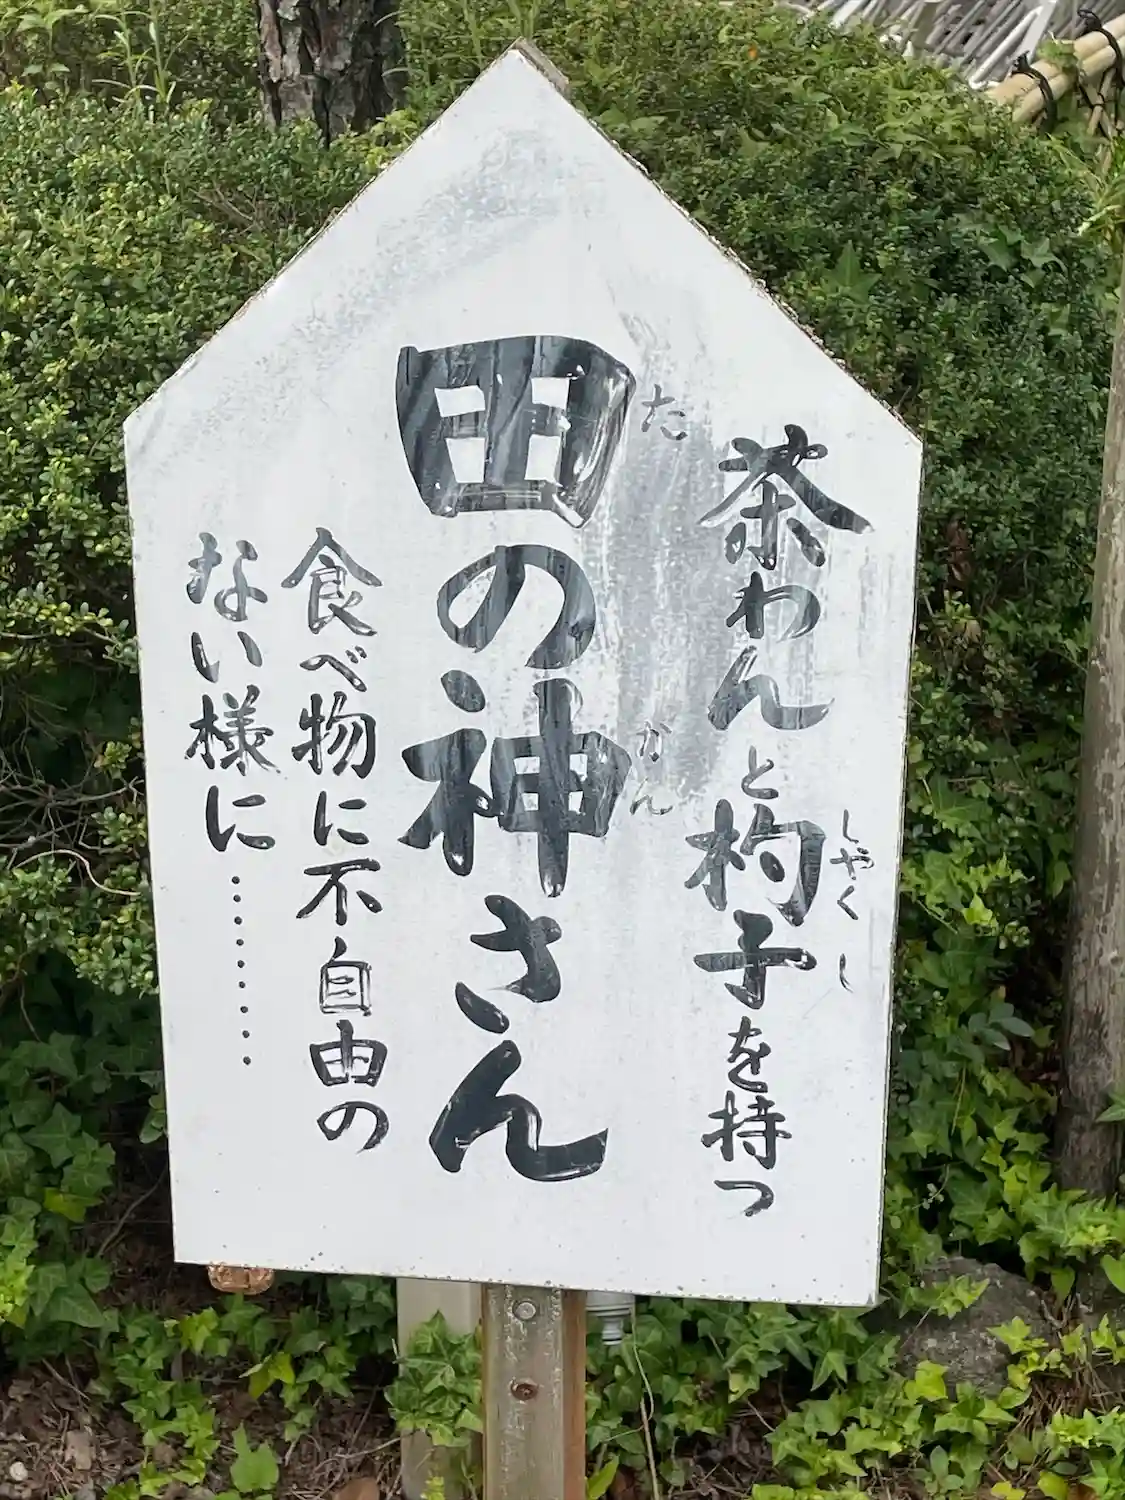 茶わんと杓子を持つ
しゃくし
田の神さん
た
かん
食べ物に不自由の
ない様に………